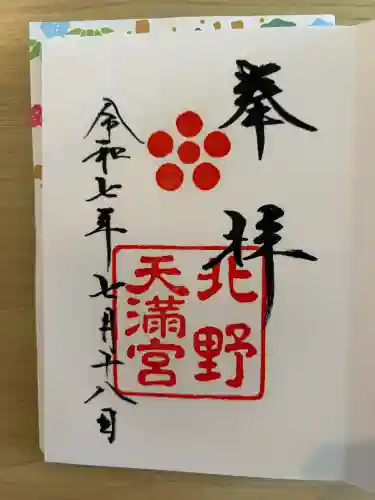 奉拝
北野
天満宮
令和七年 七月廿八日